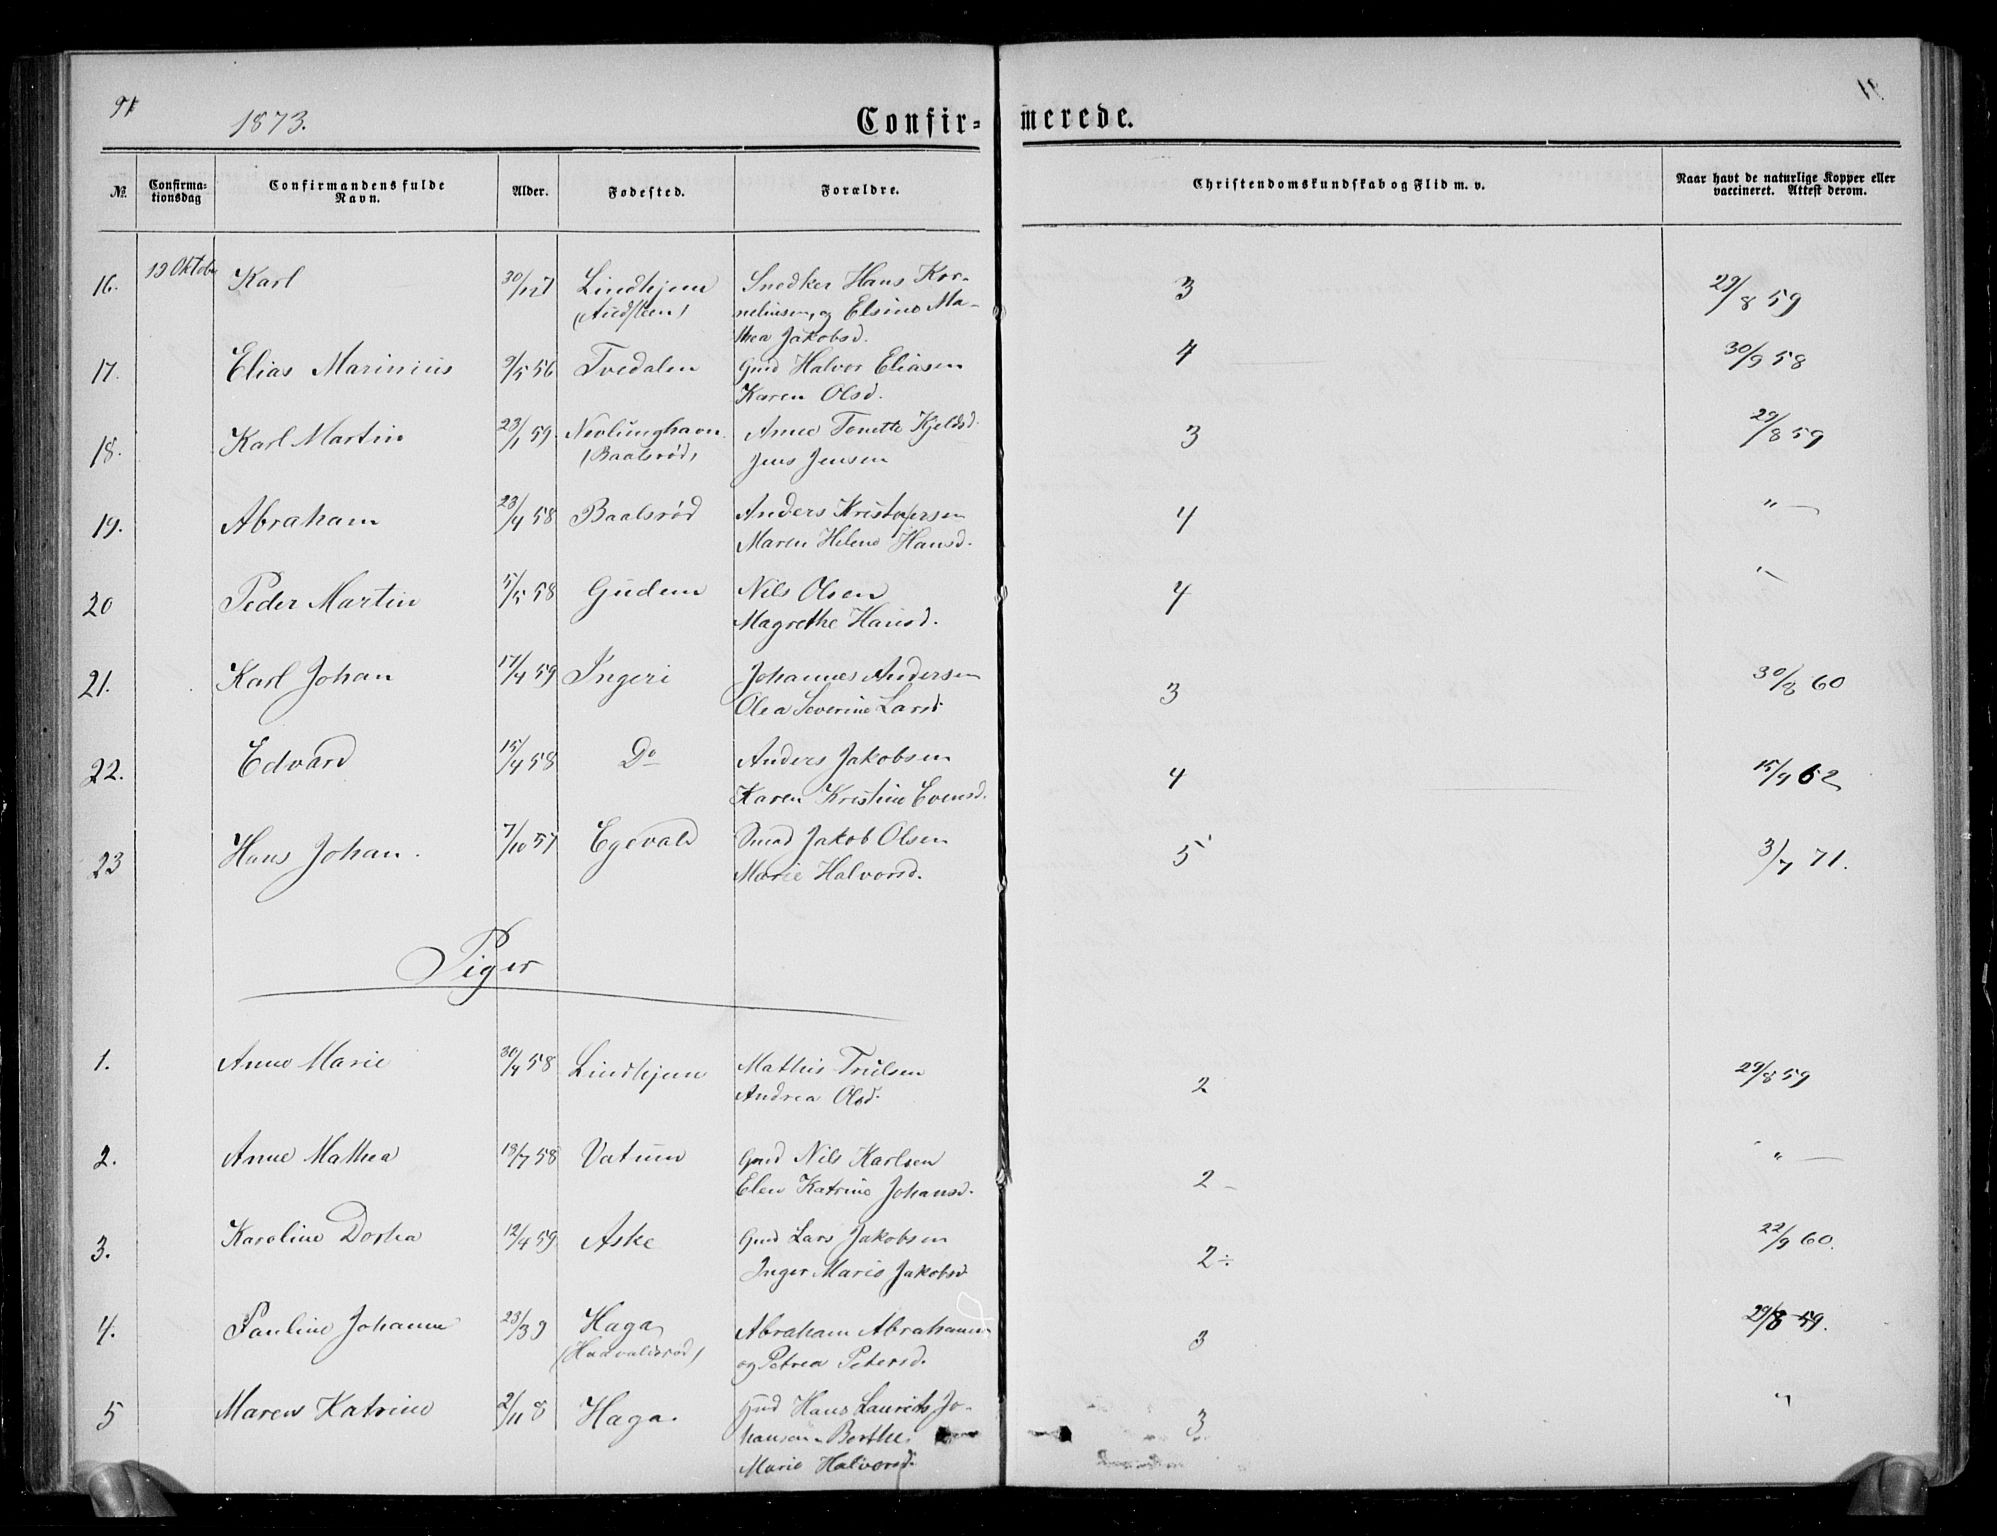 91
1873.
Confir-
merede.
No.
Confirma-
tionsdag
Confirmandens fulde
Navn.
Alder.
Fødested.
Forældre.
Christendomskundskab og Flid m. v.
Naar havt de naturlige Kopper eller
vaccineret. Attest derom.
16. 19 Oktober Karl 30/12 57 Lindhjem Snedker Hans Kor- 3 29/8 59
(Audsteen) neliusen, og Elsine Ma-
thea Jakobsd.
17. Elias Marinius 9/5 56 Tvedalen Gmd Halvor Eliasen 4 30/9 58
Karen Olsd.
18. Karl Martin 23/1 59 Nevlunghavn Anne Tonette Kjeldsd. 3 29/8 59
(Baalsrød) Jens Jensen
19. Abraham 23/4 58 Baalsrød Anders Kristofersen 4 " —
Maren Helene Hansd.
20 Peder Martin 5/5 58 Gudem Nils Olsen 4 " —
Magrethe Hansd.
21. Karl Johan 17/4 59 Ingeri Johannes Andersen 3 30/8 60
Olea Severine Larsd
22. Edvard 15/4 58 Do Anders Jakobsen 4 15/9 62
Karen Kristine Evensd.
23 Hans Johan. 7/10 57 Egevald Jakob Olsen 5 3/7 71.
Marie Halvorsd.
Piger
1. Anne Marie 30/4 58 Lindhjem Mathis Trulsen 2 29/8 59
Andrea Olsd.
2. Anne Mathea 18/7 58 Vatum Gmd Nils Karlsen 2 — " —
Elen Katrine Johansd.
3. Karoline Dorthea 12/4 59 Aske Gmd Lars Jakobsen 2 ÷ 22/9 60.
Inger Marie Jakobsd.
4. Pauline Johanne 23/3 9 Haga Abraham Abrahamsen 3 29/8 59.
(Haavaldsrød) og Petrea Petersd.
5 Maren Katrine 2/11 8 Haga. Gmd Hans Laurits Jo- 3 "
hansen Berthe
Marie Halvorsd.